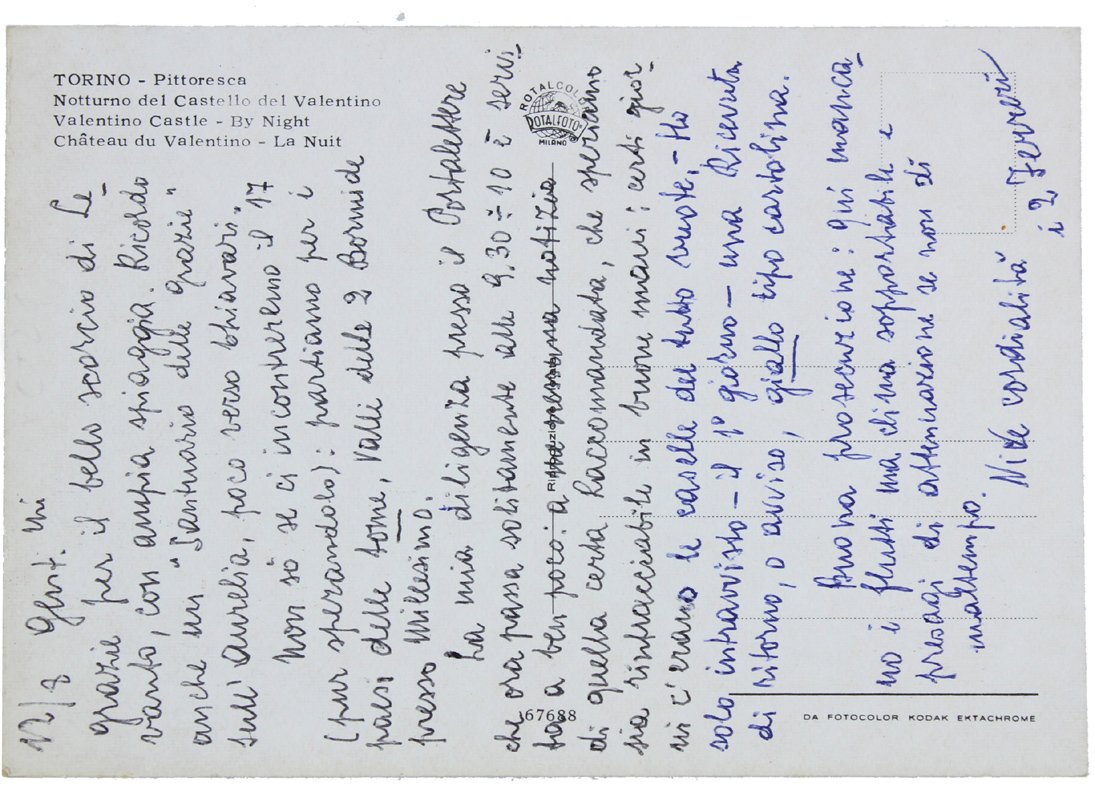 TORINO - Pittoresca
Notturno del Castello del Valentino
Valentino Castle - By Night
Château du Valentino - La Nuit
ROTALCOLOR
ROTALFOTO
MILANO
12/8 Gent.mi
grazie per il bello scorcio di Le-
vanto, con ampia spiaggia. Ricordo
anche un "Santuario delle grazie"
sull'Aurelia, poco verso Chiavari.
Non so se ci incontreremo il 17
(pur sperandolo): partiamo per i
paesi delle tome, Valli delle 2 Bormide
presso Millesimo.
La mia diligenza presso il Portalettere
che ora passa solitamente alle 9.30÷10 è servi-
ta a ben poco: a nessuna notizia
di quella certa Raccomandata, che speriamo
sia rintracciabile in buone mani; certi gior-
ni c'erano le caselle del tutto vuote. - Ho
solo intravvisto - il 1° giorno - una Ricevuta
di ritorno, o avviso, giallo tipo cartolina.
Buona prosecuzione: qui manca-
no i flutti ma clima sopportabile e
presagi di attenuazione se non di
maltempo.
Vive cordialità
i 2 Ferreri
67688
DA FOTOCOLOR KODAK EKTACHROME